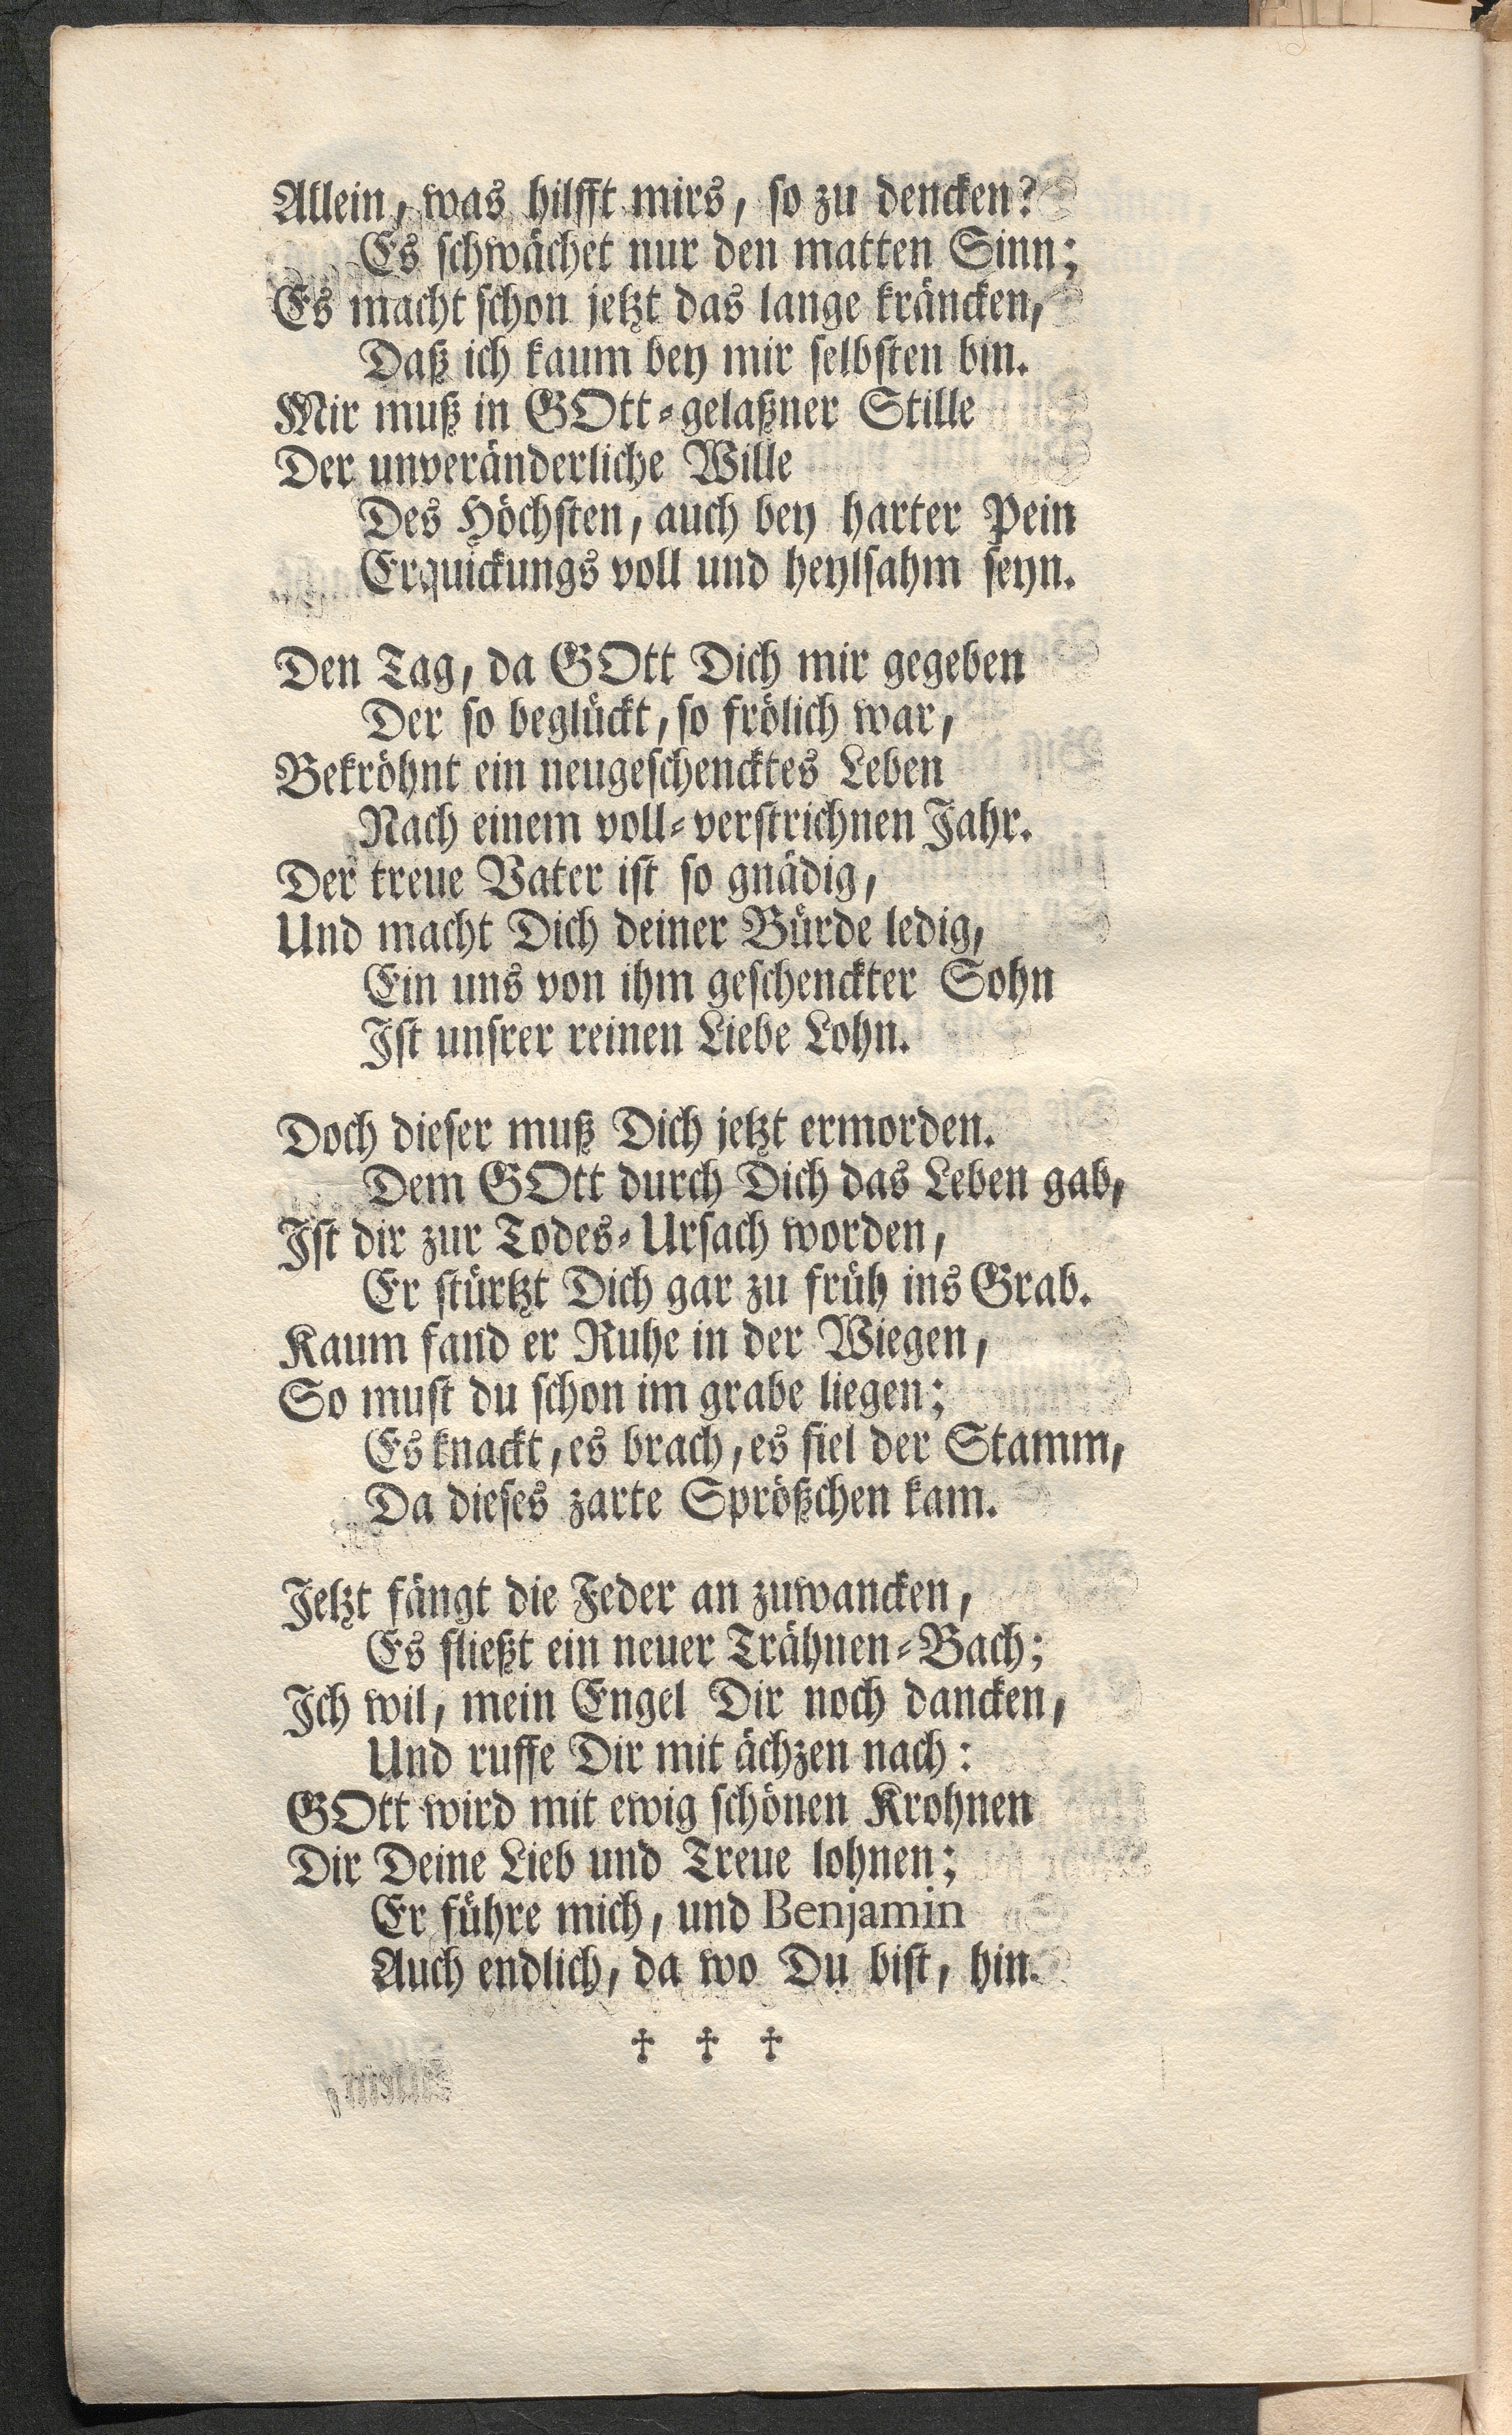 Allein, was hilfft mirs, so zu dencken?
Es schwächet nur den matten Sinn;
Es macht schon jetzt das lange kräncken,
Daß ich kaum bey mir selbsten bin.
Mir muß in GOtt-gelaßner Stille
Der unveränderliche Wille
Des Höchsten, auch bey harter Pein
Erquickungs voll und heylsahm seyn.
Den Tag, da GOtt Dich mir gegeben
Der so beglückt, so frölich war,
Bekröhnt ein neugeschencktes Leben
Nach einem voll-verstrichnen Jahr.
Der treue Vater ist so gnädig,
Und macht Dich deiner Bürde ledig,
Ein uns von ihm geschenckter Sohn
Ist unsrer reinen Liebe Lohn.
Doch dieser muß Dich jetzt ermorden.
Dem GOtt durch Dich das Leben gab,
Ist dir zur Todes-Ursach worden,
Er stürtzt Dich gar zu früh ins Grab.
Kaum fand er Ruhe in der Wiegen,
So must du schon im grabe liegen;
Es knackt, es brach, es fiel der Stamm,
Da dieses zarte Sprößchen kam.
Jetzt fängt die Feder an zuwancken,
Es fließt ein neuer Trähnen-Bach;
Ich wil, mein Engel Dir noch dancken,
Und ruffe Dir mit ächzen nach:
GOtt wird mit ewig schönen Krohnen
Dir Deine Lieb und Treue lohnen;
Er führe mich, und Benjamin
Auch endlich, da wo Du bist, hin.
✝ ✝ ✝